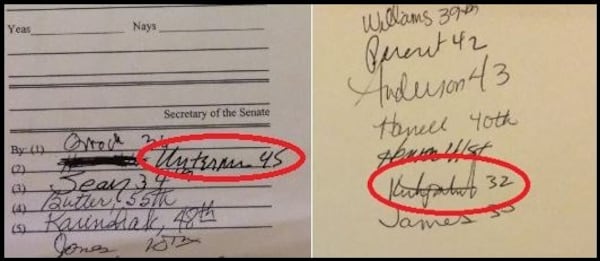 Yeas Nays
Secretary of the Senate
By: (1) Orrock 36
(2) Unterman 45
(3) Seay 34th
(4) Butler, 55th
(5) Karinshak, 48th
Jones 10th
Williams 39th
Parent 42
Anderson 43
Harrell 40th
Henson 41st
Kirkpatrick 32
James 35